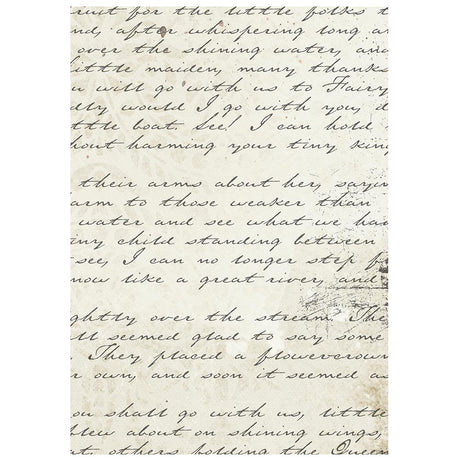 ruit for the little folks t
nd, after whispering long an
over the shining water, and
ittle maiden, many thanks
u will go with us to Fairy
dly would I go with you, d
ttle boat. See! I can hold
hout harming your tiny king
their arms about her, sayin
arm to those weaker than
water and see what we had
iny child standing between
see, I can no longer step f
now like a great river, and
ghtly over the stream. The
ll seemed glad to say some
They placed a flowercrown
r own, and soon it seemed as
ou shall go with us, little
blew about on shining wings,
t, others holding the Queen